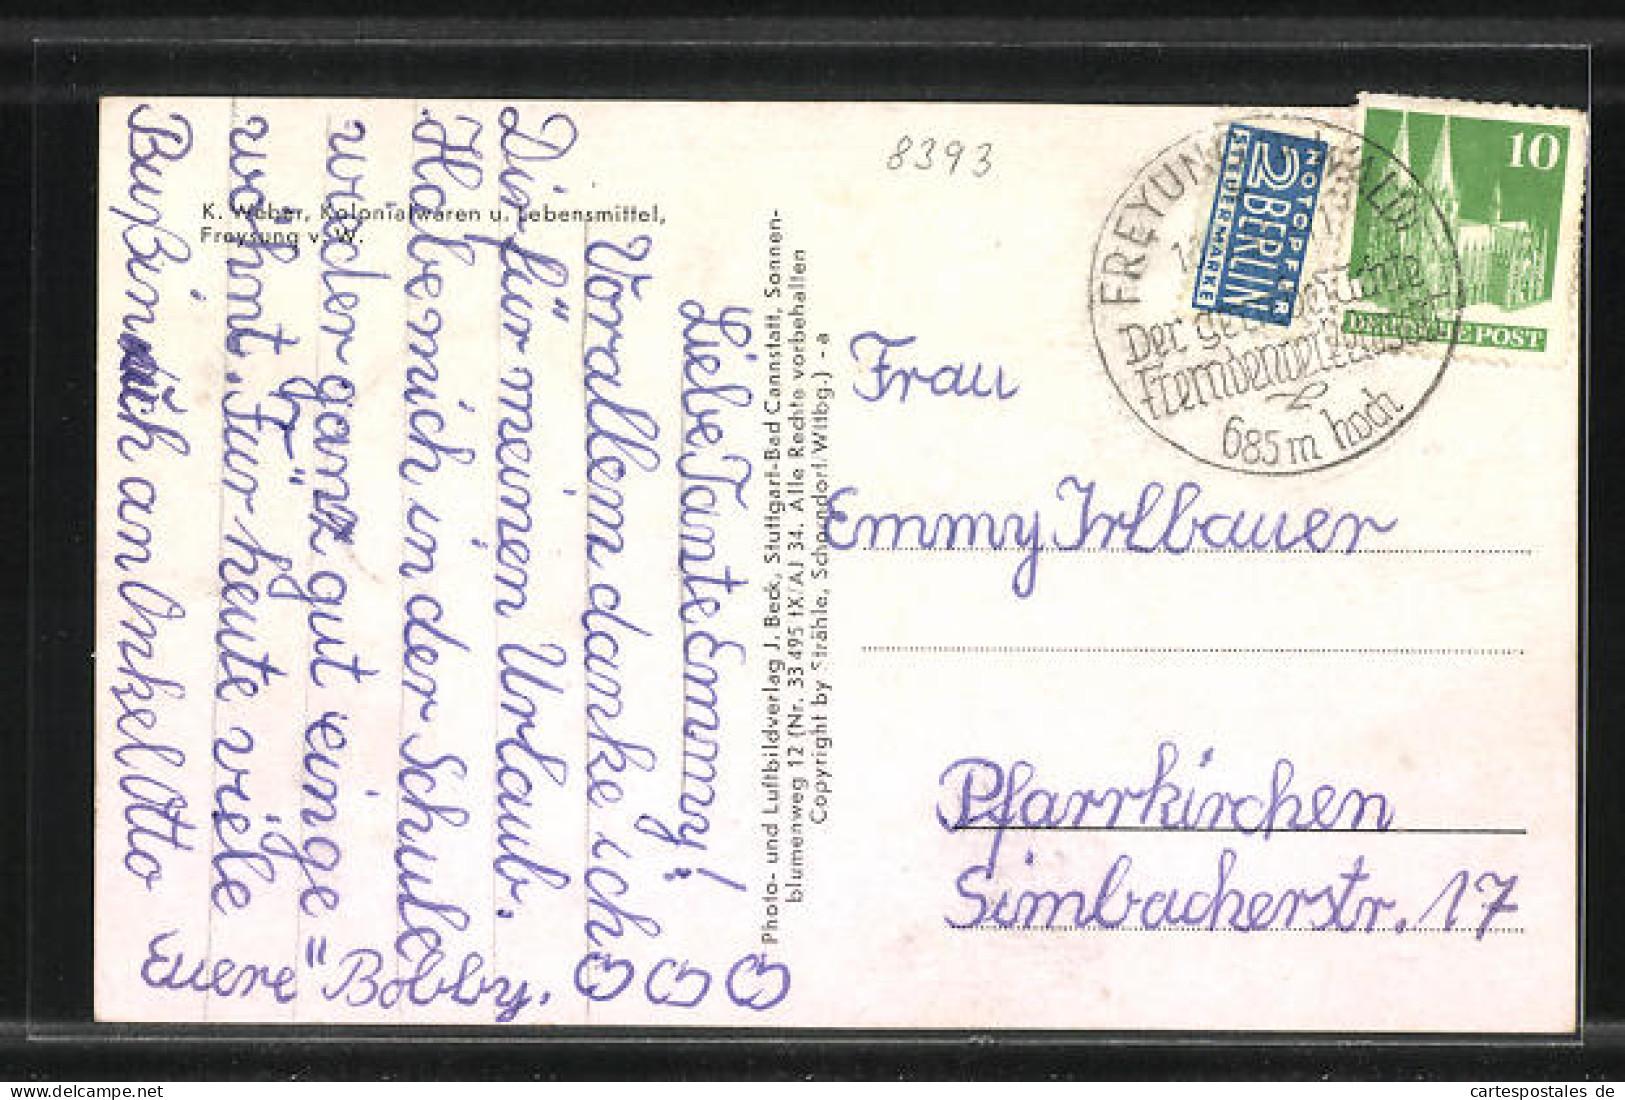 8393
K. Weber, Kolonialwaren u. Lebensmittel,
Freysung v. W.
Liebe Tante Emmy!
Vorallem danke ich
Dir für meinen Urlaub.
Habe mich in der Schule
wieder ganz gut einge=
wöhnt. Für heute viele
Bußi an Onkel Otto
Euere "Bobby.
Photo- und Luftbildverlag J. Beck, Stuttgart-Bad Cannstatt, Sonnen-
blumenweg 12 (Nr. 33 495 IX/AJ 34. Alle Rechte vorbehalten
Copyright by Strähle, Schorndorf/Wttbg.) - a
NOTOPFER
2 BERLIN
STEUERMARKE
10
DEUTSCHE POST
FREYUNG
Der
685 m hoch
Frau
Emmy Irlbauer
Pfarrkirchen
Simbacherstr. 17
cartespostales de